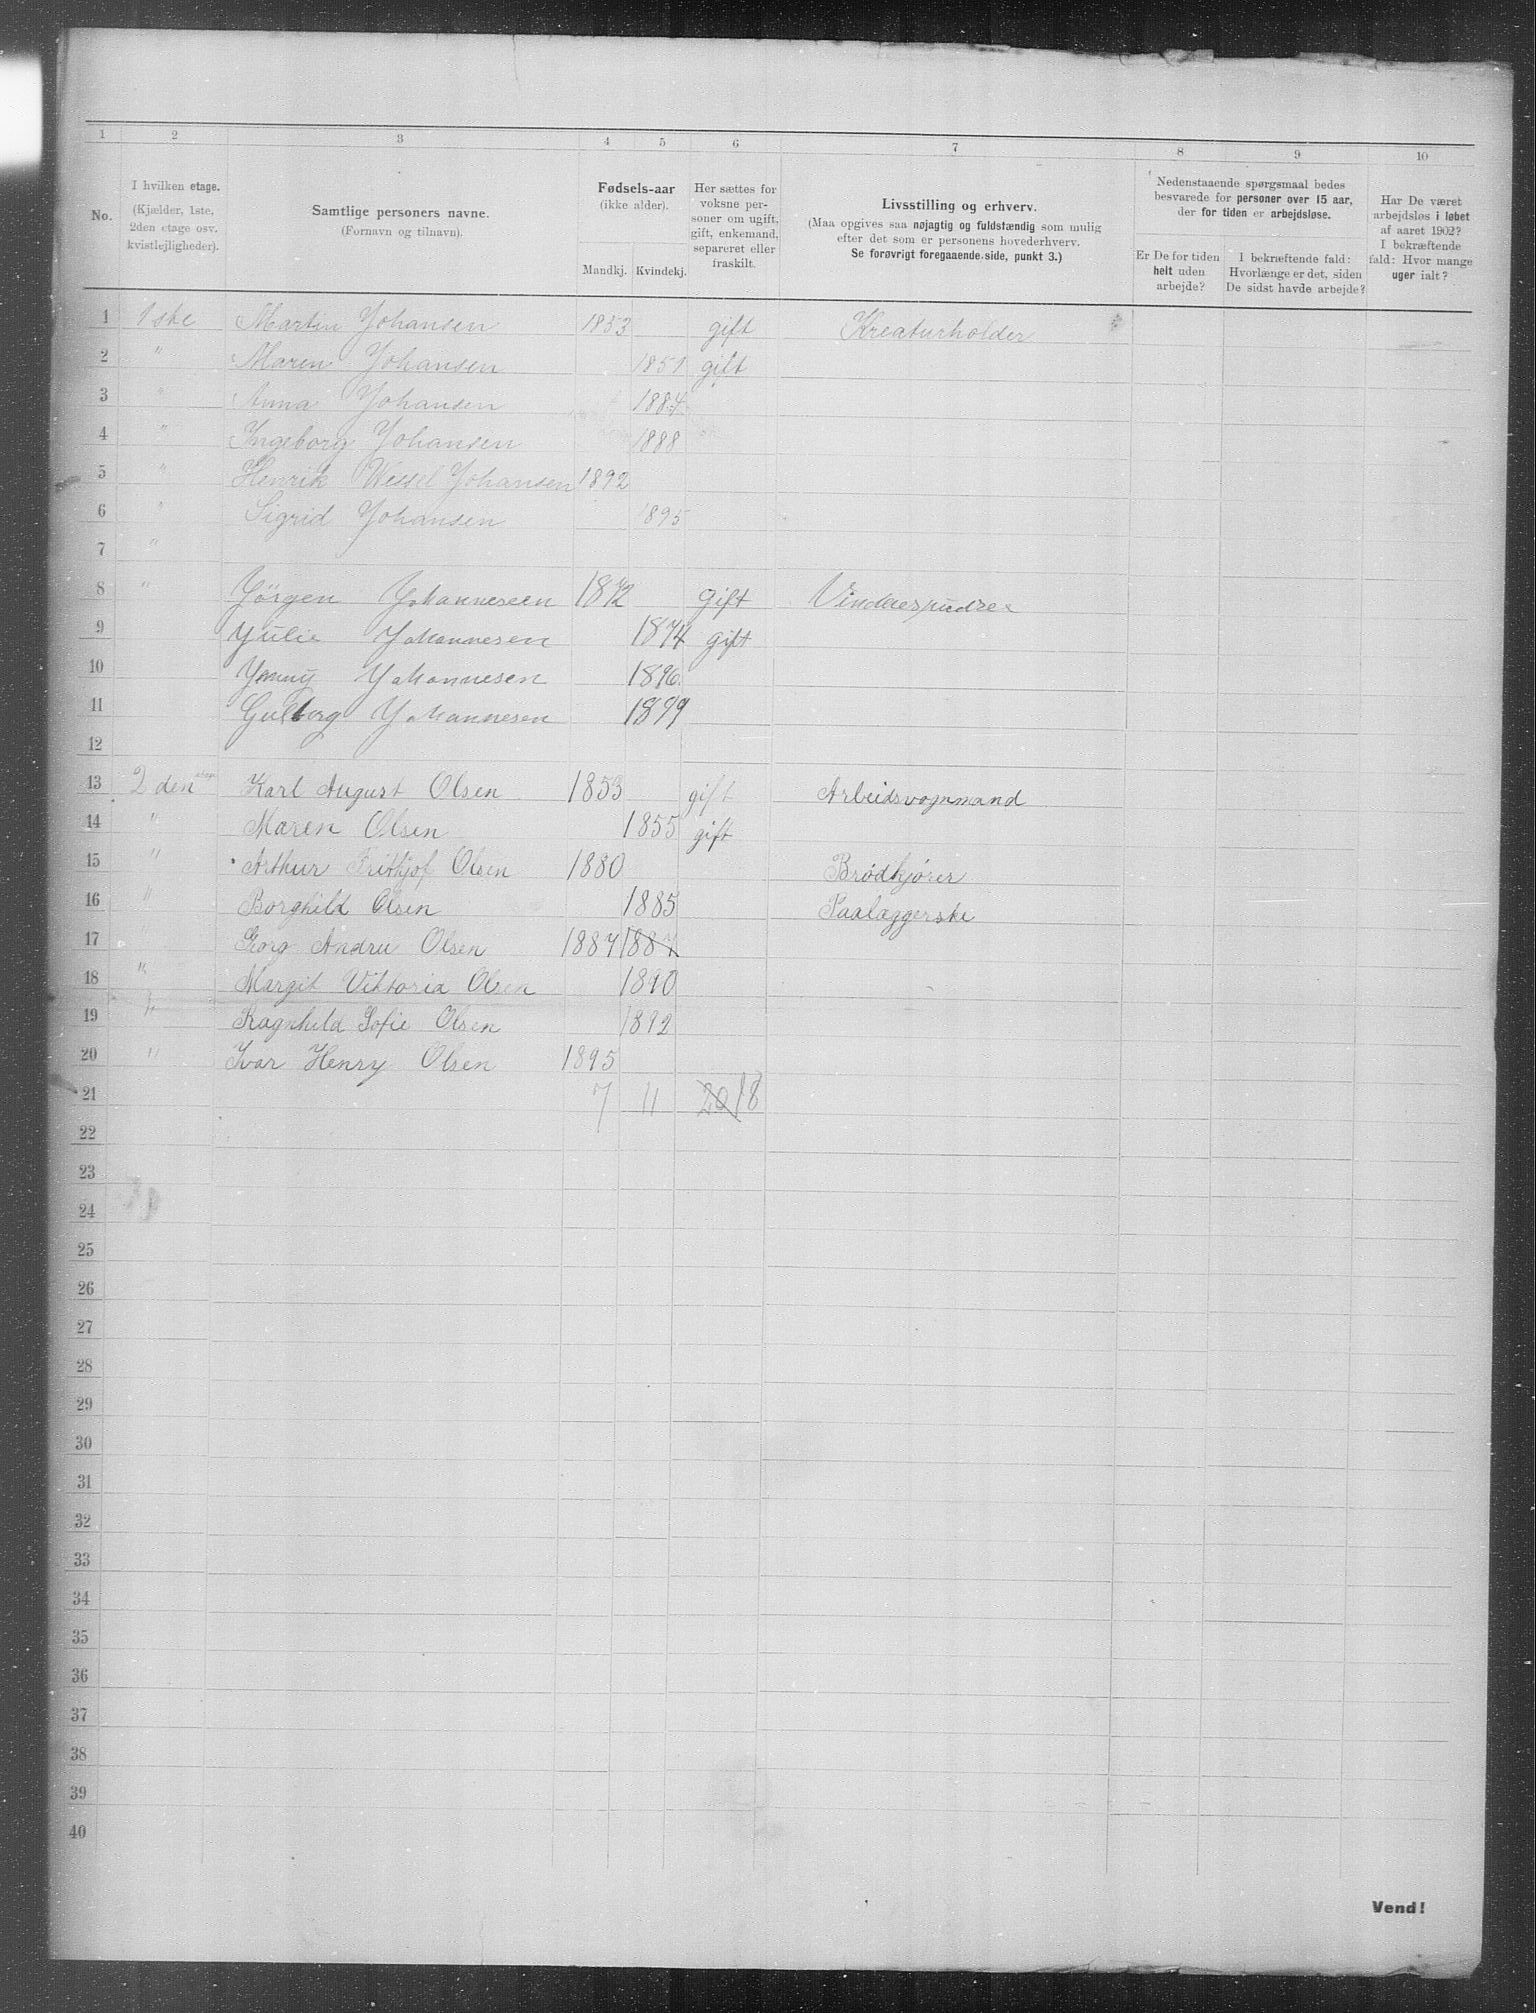 1 2 3 4 5 6 7 8 9 10
No.
I hvilken etage.
(Kjælder, 1ste,
2den etage osv.
kvistlejligheder).
Samtlige personers navne.
(Fornavn og tilnavn).
Fødsels-aar
(ikke alder).
Mandkj. Kvindekj.
Her sættes for
voksne per-
soner om ugift,
gift, enkemand,
separeret eller
fraskilt.
Livsstilling og erhverv.
(Maa opgives saa nøjagtig og fuldstændig som mulig
efter det som er personens hovederhverv.
Se forøvrigt foregaaende side, punkt 3.)
Nedenstaaende spørgsmaal bedes
besvarede for personer over 15 aar,
der for tiden er arbejdsløse.
Er De for tiden
helt uden
arbejde?
I bekræftende fald:
Hvorlænge er det, siden
De sidst havde arbejde?
Har De været
arbejdsløs i løbet
af aaret 1902?
I bekræftende
fald: Hvor mange
uger ialt?
1 1ste Martin Johansen 1853 gift Kreaturholder
2 " Maren Johansen 1851 gift
3 " Anna Johansen 1884
4 " Ingeborg Johansen 1888
5 " Henrik Wessel Johansen 1892
6 " Sigrid Johansen 1895
7 "
8 " Jörgen Johannesen 1872 gift
9 Julie Johannesen 1874 gift
10 Jenny Johannesen 1896
11 Gulborg Johannesen 1899
12
13 2den etage Karl August Olsen 1853 gift Arbeidsvognmand
14 " Maren Olsen 1855 gift
15 " Arthur Frithjof Olsen 1880 Brødkjører
16 " Borghild Olsen 1885 Saalæggerske
17 Georg Andru Olsen 1887 1887
18 " Margit Viktoria Olsen 1890
19 " Ragnhild Sofie Olsen 1892
20 " Ivar Henry Olsen 1895
21 7 11 20 18
22
23
24
25
26
27
28
29
30
31
32
33
34
35
36
37
38
39
40
Vend!